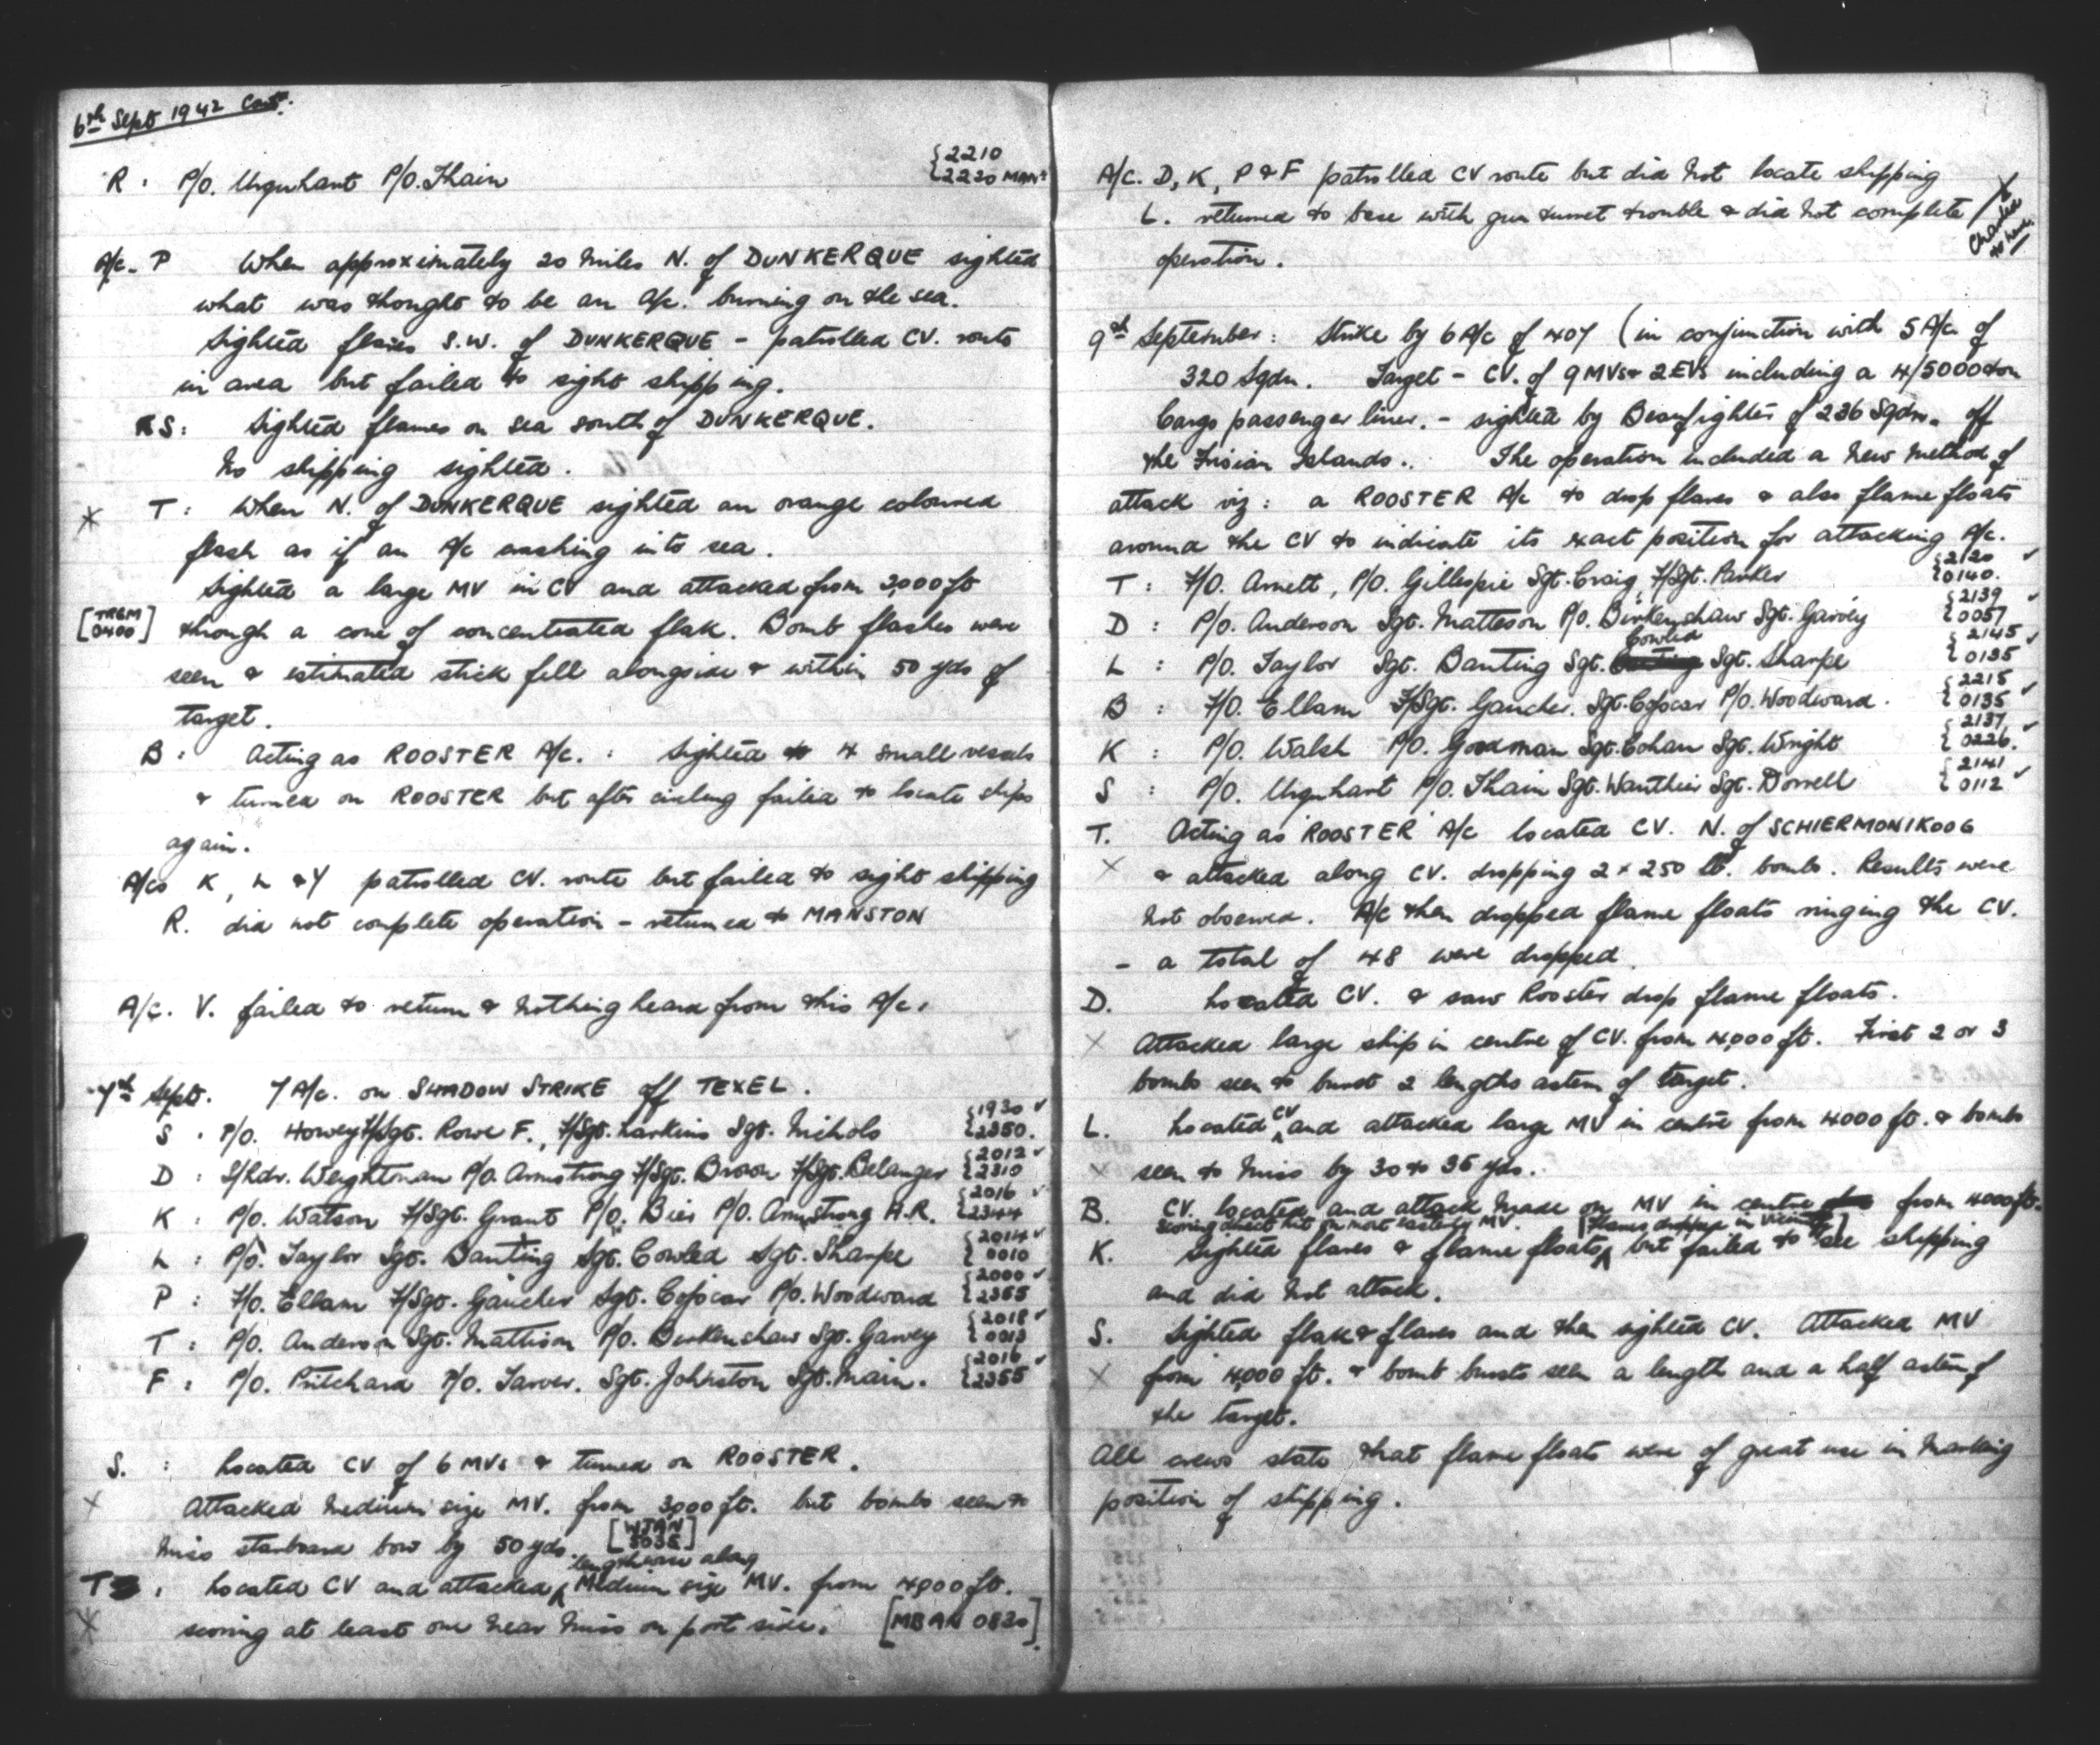 6th Sept 1942 Cont.
R. P/O. Urquhart P/O. Thain {2210
{2220 MAN
A/c. P When approximately 20 miles N. of DUNKERQUE sighted
what was thought to be an A/c. burning on the sea.
Sighted flares S.W. of DUNKERQUE - patrolled CV. route
in area but failed to sight shipping.
S: Sighted flames on sea south of DUNKERQUE.
No shipping sighted.
T: When N. of DUNKERQUE sighted an orange coloured
flash as if an A/c crashing into sea.
Sighted a large MV in CV and attacked from 3,000 ft
[TRGM
0400] through a cone of concentrated flak. Bomb flashes were
seen & estimated stick fell alongside & within 50 yds of
target.
B: Acting as ROOSTER A/c. : Sighted 4 small vessels
& turned on ROOSTER but after circling failed to locate ships
again.
A/cs K, L & Y patrolled CV. route but failed to sight shipping
R. did not complete operation - returned to MANSTON
A/c. V. failed to return & nothing heard from this A/c.
7th Sept. 7 A/c. on SHADOW STRIKE off TEXEL.
S . P/O. Howey F/Sgt. Rowe F., F/Sgt. Larkins Sgt. Nichols {1930 ✓
{2350.
D : S/Ldr. Weightman P/O. Armstrong F/Sgt. Brown F/Sgt. Belanger {2012 ✓
{2310
K : P/O. Watson F/Sgt. Grant P/O. Bier P/O. Armstrong H.R. {2016 ✓
{2344
L : P/O. Taylor Sgt. Banting Sgt. Cowled Sgt. Sharpe {2014 ✓
{0010
P : F/O. Ellam F/Sgt. Gaucher Sgt. Cojocar P/O. Woodward {2000 ✓
{2355
T : P/O. Anderson Sgt. Mattison P/O. Birkenshaw Sgt. Garvey {2018 ✓
{0013
F : P/O. Pritchard P/O. Tarver. Sgt. Johnston Sgt. Main. {2016 ✓
{2355
S. : Located CV of 6 MVs & turned on ROOSTER.
X Attacked medium size MV. from 3,000 ft. but bombs seen to
miss starboard bow by 50 yds. [WJAN
3035]
lengthwise along
T : Located CV and attacked ∧ Medium size MV. from 4,000 ft.
X scoring at least one near miss on port side. [MBAN 0820].
A/c. D, K, P & F patrolled CV route but did not locate shipping
L. returned to base with gun turret trouble & did not complete
operation.
9th September: Strike by 6 A/c of 407 (in conjunction with 5 A/c of
320 Sqdn. Target - CV. of 9 MVs & 2 EVs including a 4/5000 ton
Cargo passenger liner. - sighted by Beaufighters of 236 Sqdn. off
the Frisian Islands.. The operation included a new method of
attack viz: a ROOSTER A/c to drop flares & also flame floats
around the CV to indicate its exact position for attacking A/c.
T : F/O. Arnett, P/O. Gillespie Sgt. Craig, F/Sgt. Parker {2120 ✓
{0140.
D : P/O. Anderson Sgt. Matteson P/O. Birkenshaw Sgt. Garvey {2139 ✓
{0057
Cowled
L : P/O. Taylor Sgt. Banting Sgt. Sgt. Sharpe {2145 ✓
{0135
B : F/O. Ellam F/Sgt. Gaucher. Sgt. Cojocar P/O. Woodward. {2215
{0135 ✓
K : P/O. Walsh P/O. Goodman Sgt. Cohan Sgt. Wright {2137 ✓
{0226.
S : P/O. Urquhart P/O. Thain Sgt. Wauthier Sgt. Dorrell {2141
{0112 ✓
T. Acting as 'ROOSTER' A/c located CV. N. of SCHIERMONIKOOG
X & attacked along CV. dropping 2 x 250 lb. bombs. Results were
not observed. A/c then dropped flame floats ringing the CV.
- a total of 48 were dropped.
D. Located CV. & saw Rooster drop flame floats.
X Attacked large ship in centre of CV. from 4,000 ft. First 2 or 3
bombs seen to burst 2 lengths astern of target.
L. Located CV ∧ and attacked large MV in centre from 4000 ft. & bombs
X seen to miss by 30 to 35 yds.
B. CV. located and attack made on MV in centre from 4000 ft.
scoring direct hit on most easterly MV. [Flares dropped in vicinity]
K. Sighted flares & flame floats ∧ but failed to see shipping
and did not attack.
S. Sighted flak & flares and then sighted CV. Attacked MV
X from 4,000 ft. & bomb bursts seen a length and a half astern of
the target.
All crews state that flame floats were of great use in marking
position of shipping.